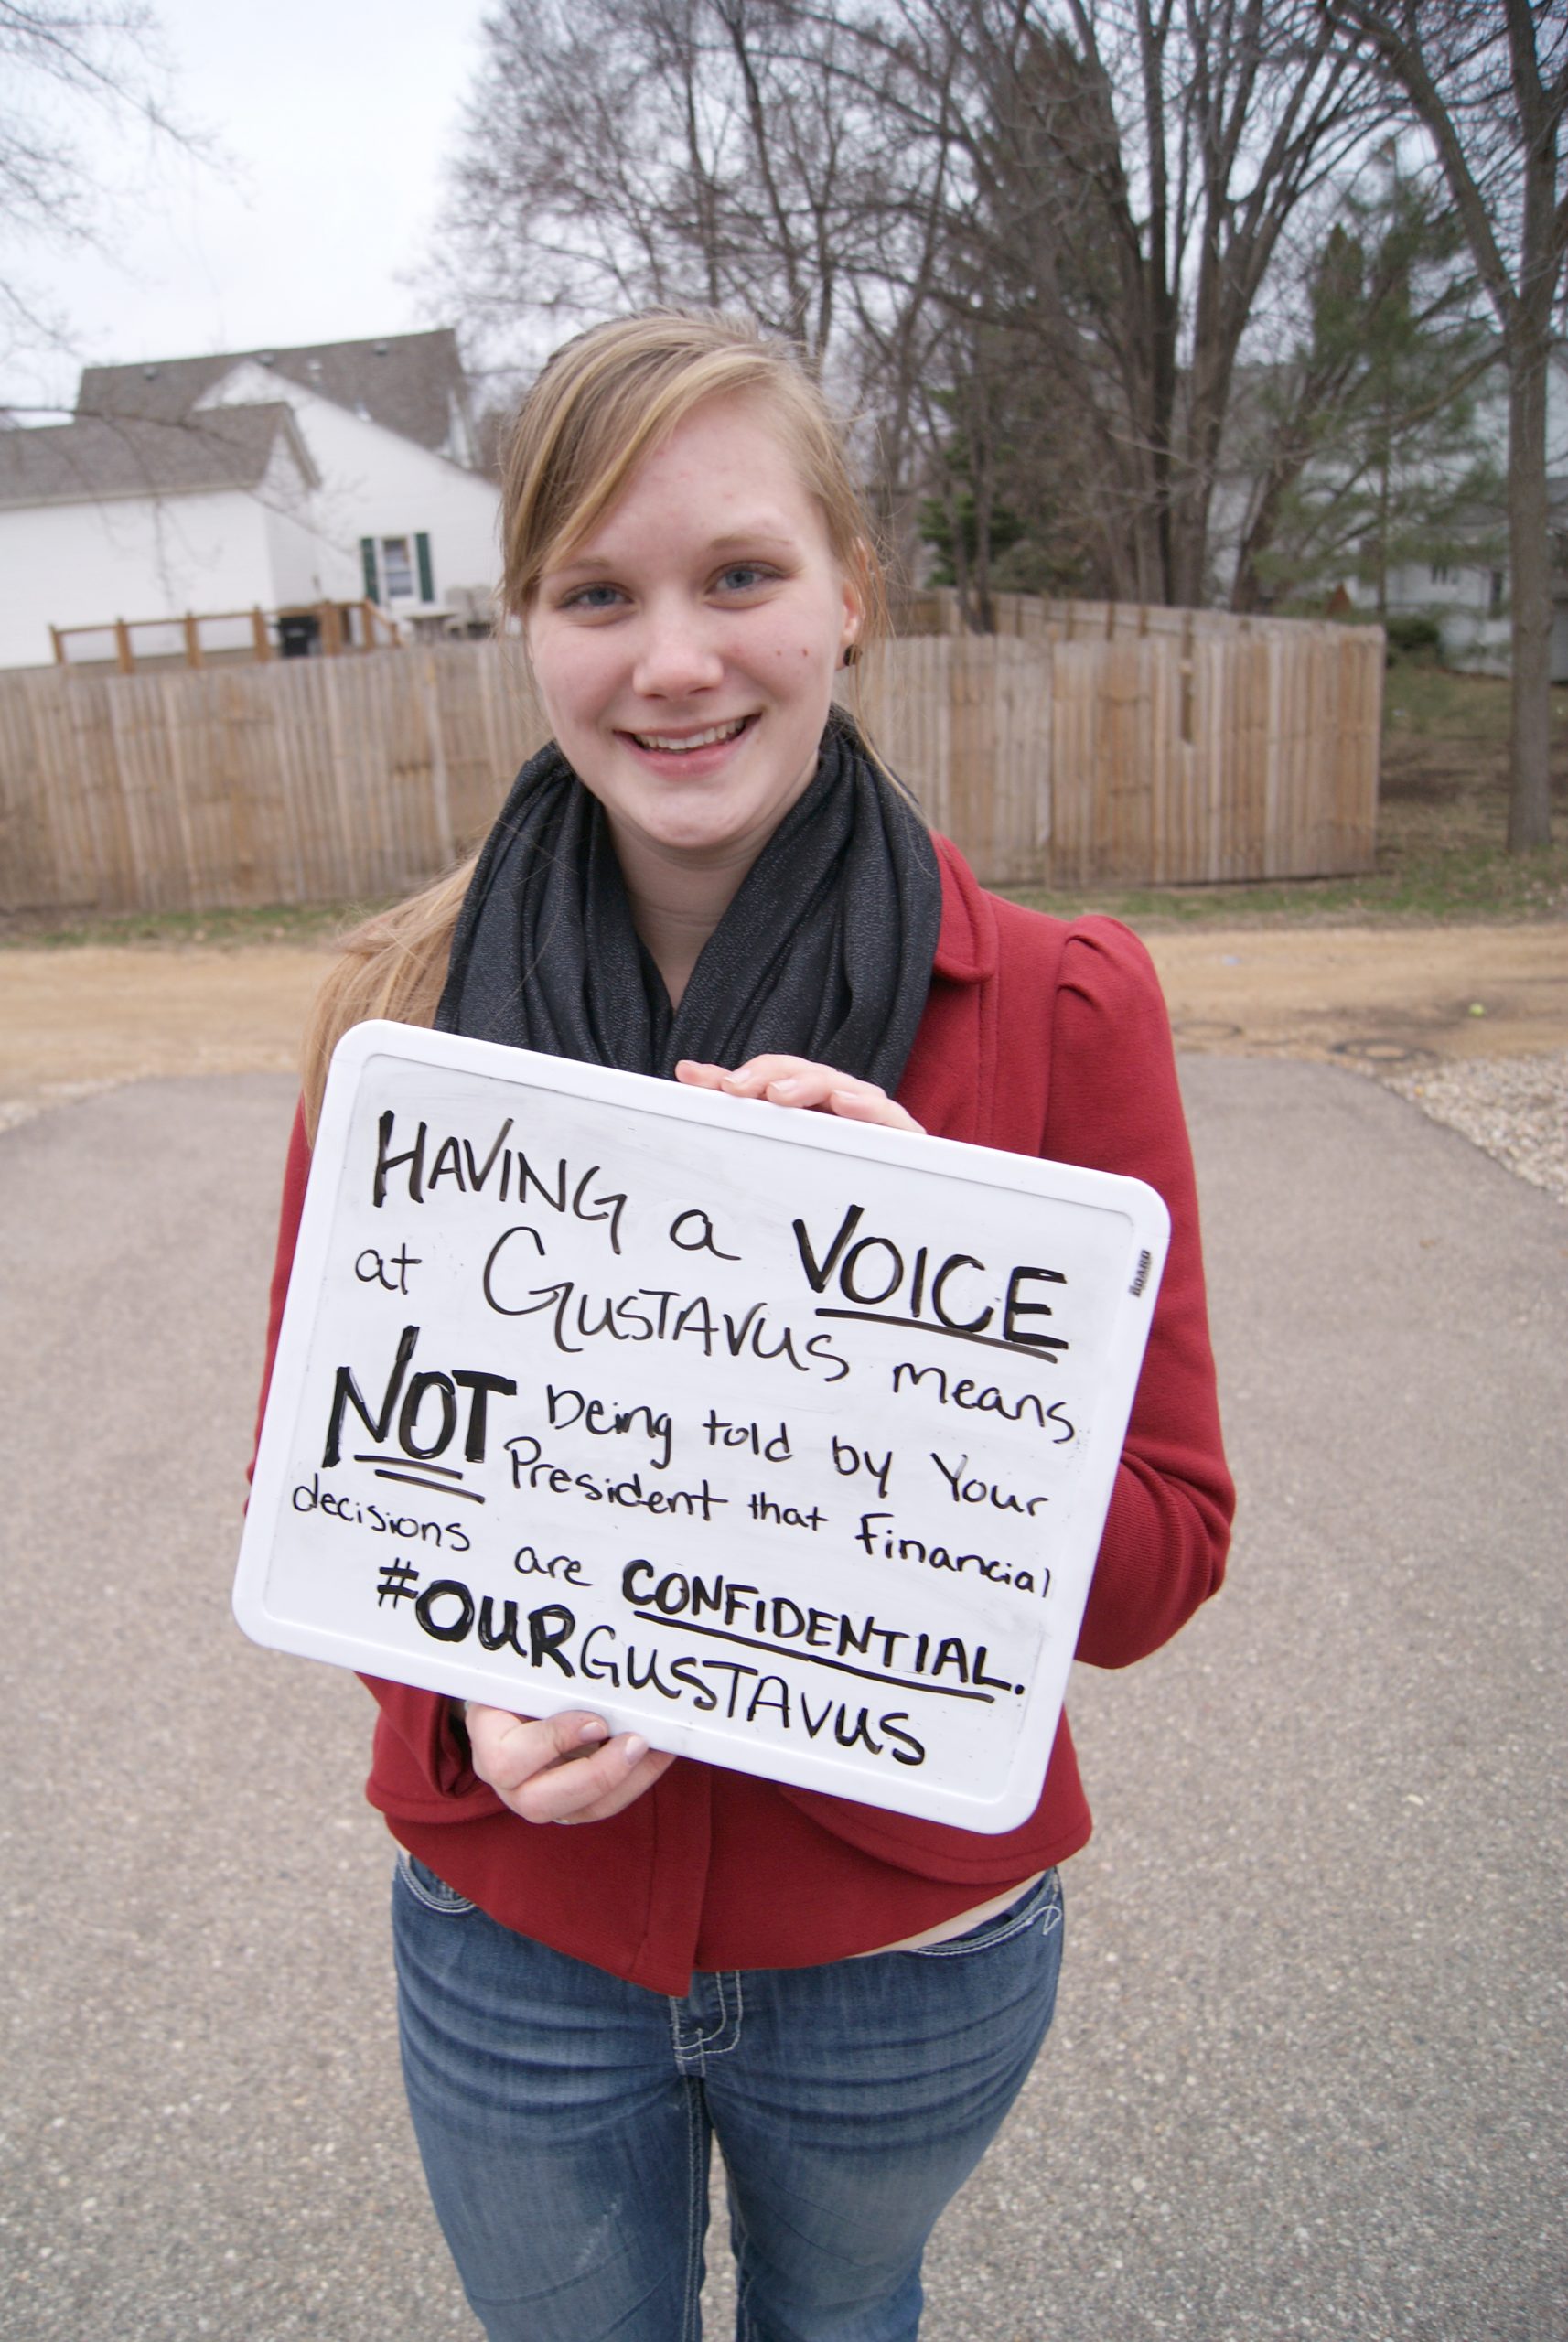 HAVING a VOICE
at GUSTAVUS means
NOT being told by Your
President that Financial
decisions are CONFIDENTIAL.
#OURGUSTAVUS
BOARD